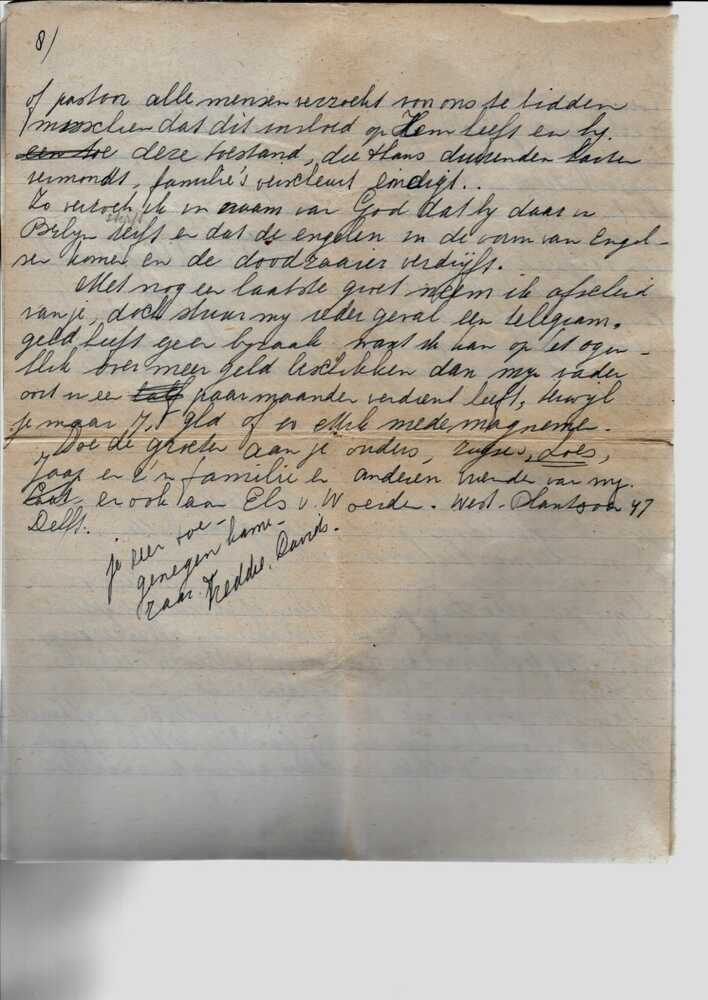 8/
of pastoor alle mensen verzocht von ons te bidden
misschien dat dit invloed op Hem heeft en hy
een toe deze toestand, die thans duizenden
vermondt, familie's verscheurt eindigt..
Zo verzoek ik in naam van God dat hy daar in
Berlyn heeft en dat de engelen in de vorm van Engel-
sen komen en de doodzaaier verdryft.
Met nog een laatste groet neem ik afscheid
van je, doch stuur my ieder geval een telegram.
geld heeft geen bezwaar want ik kan op 't ogen-
blik over meer geld beschikken dan myn vader
ooit in een half paar maanden verdient heeft, terwyl
je maar gld of zo mag meenemen.
Doe de groeten aan je ouders, zusjes, Loes,
Jaap en z'n familie en anderen vrienden van my.
en ook aan Els v. Woerden. West-Plantsoen 47
Delft.
je zeer toe-
genegen kame-
raad. Freddie. Davids.